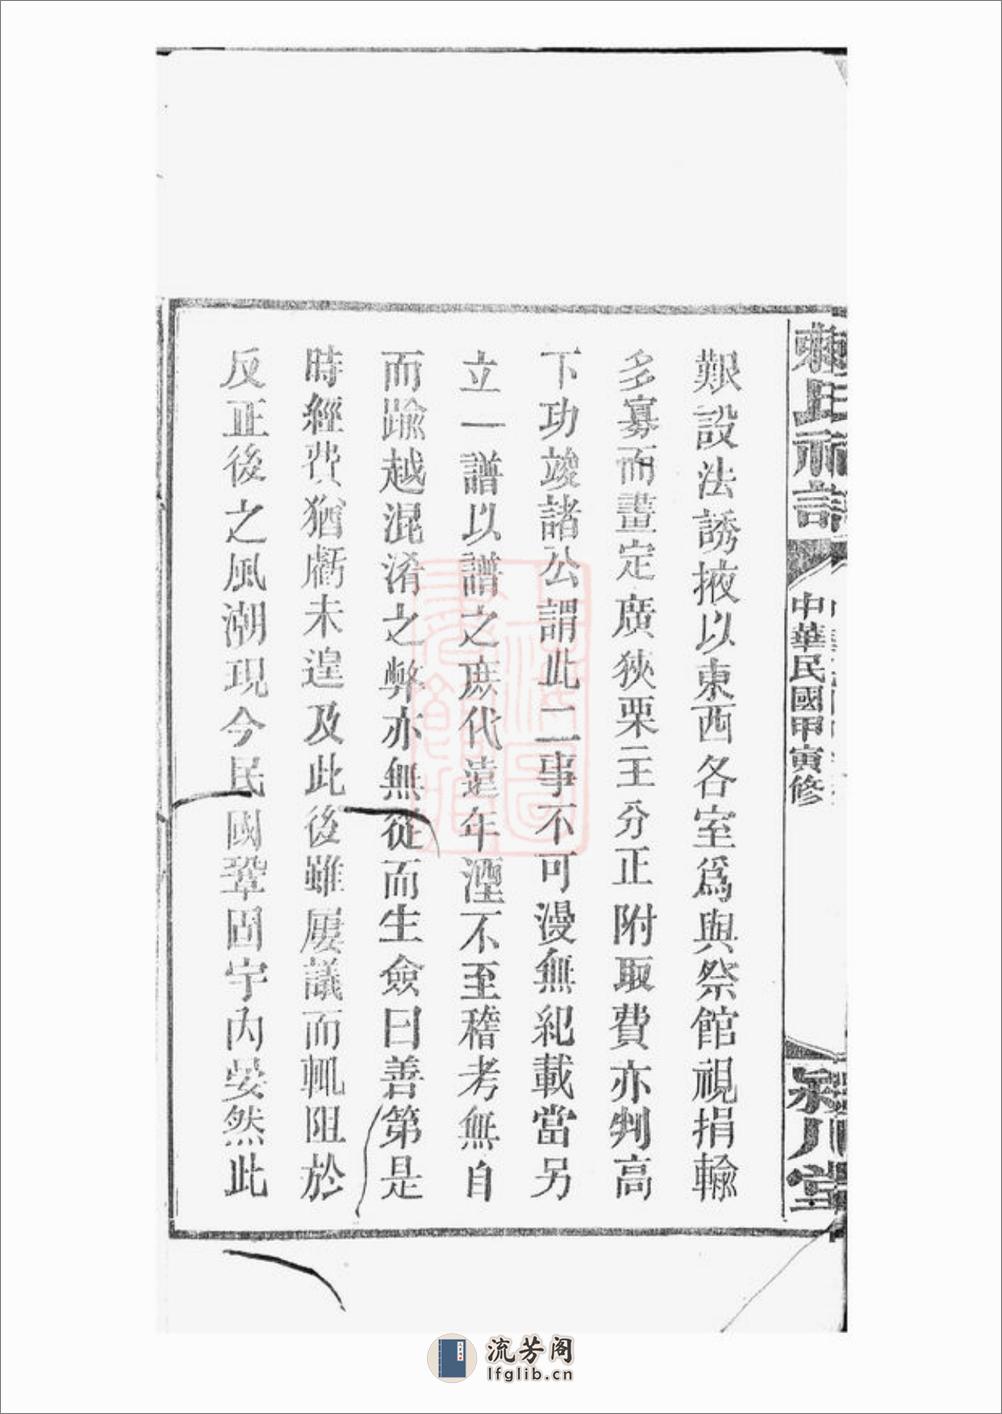 賴氏祠譜
中華民國甲寅修
潁川堂
艱設法誘掖以東西各室爲與祭館視捐輸
多寡而畫定廣狹栗主分正附取費亦判高
下功竣諸公謂此二事不可漫無紀載當另
立一譜以譜之庶代遠年湮不至稽考無自
而踰越混淆之弊亦無從而生僉曰善第是
時經費猶虧未遑及此後雖屢議而輒阻於
反正後之風潮現今民國鞏固宇內晏然此
流芳阁
lfglib.cn